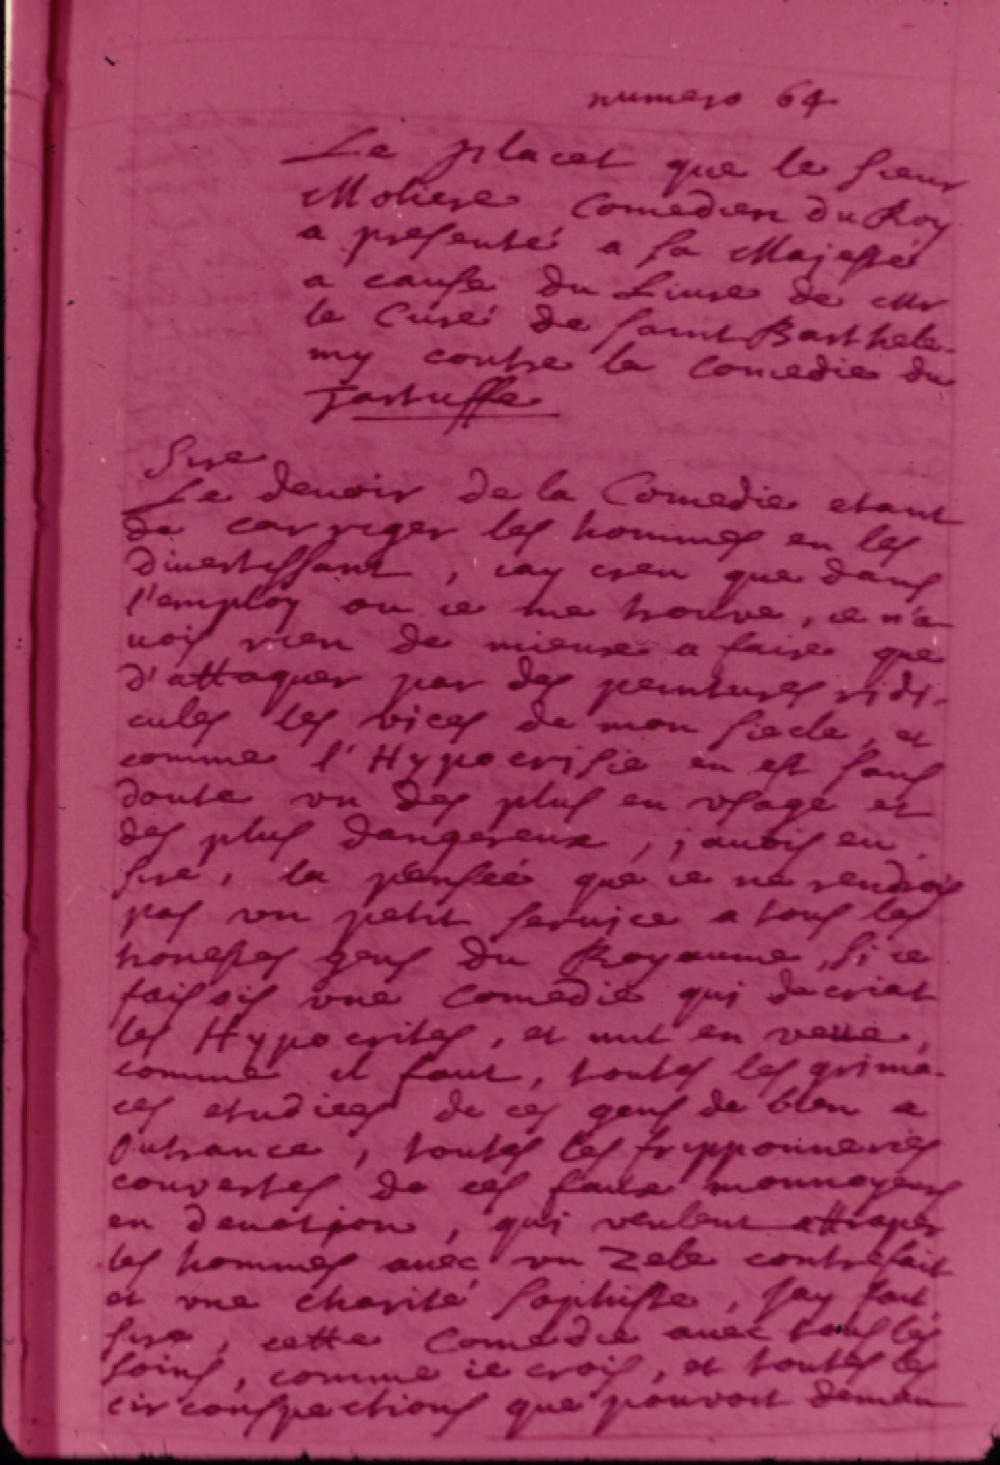 numero 64
Le placet que le sieur
Moliere Comedien du Roy
a presenté a sa Majesté
a cause du Liure de Mr
le Curé de saint Barthele-
my contre la Comedie du
Tartuffe
Sire
Le deuoir de la Comedie etant
de corriger les hommes en les
diuertissant, iay creu que dans
l'employ ou ie me trouve, ie n'a
uois rien de mieux a faire que
d'attaquer par des peintures ridi-
cules les vices de mon siecle, et
comme l'Hypocrisie en est sans
doute vn des plus en vsage et
des plus dangereux, j'auois eu,
sire, la pensée que ie ne rendrois
pas vn petit seruice a tous les
honestes gens du Royaume, si ie
faissois vne comedie qui decriat
les Hypocrites, et mit en veue,
comme il faut, toutes les grima-
ces etudiees de ces gens de bien a
outrance, toutes les fripponneries
couvertes de ces faux monnoyeurs
en deuotion, qui veulent attraper
les hommes auec vn Zele contrefait
et vne charité sophiste, jay fait
sire, cette Comedie auec tous les
soins, comme ie crois, et toutes les
circonspections que pouvoit deman